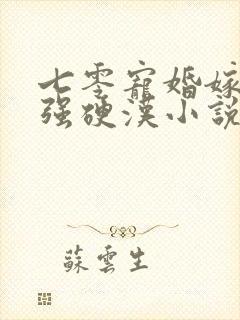 七零寵婚嫁
强硬漢小說
蘇雲生